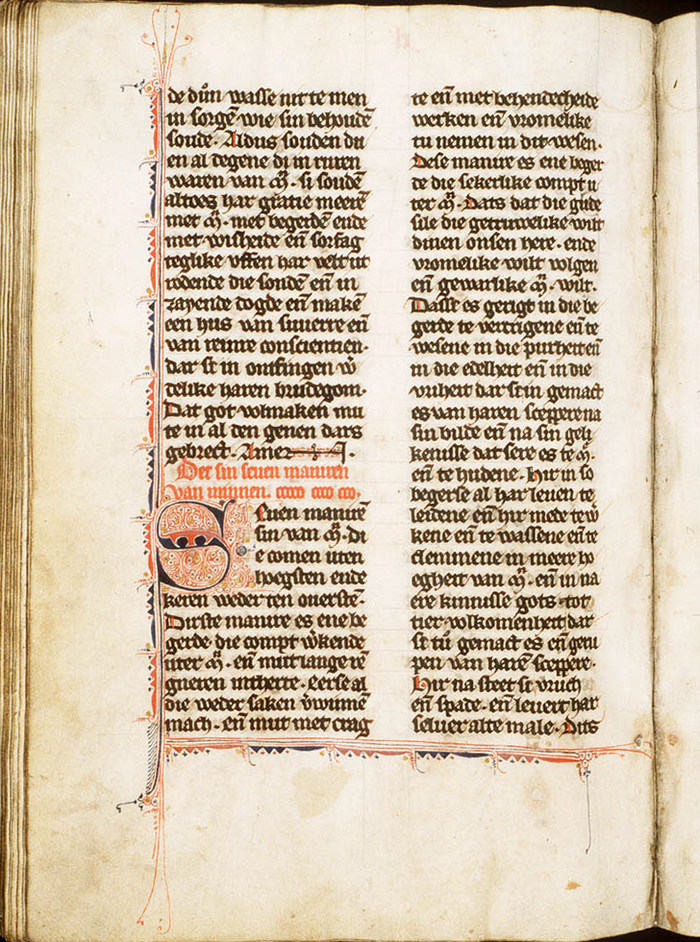 de důn wasse nit te men
in sorgē wie sin behoudē
soude. Aldus souden du
en al degene di in ruren
waren van m̄. si soudē
altoes har gratie meerē
met m̄. met begerdē ende
met wisheide eñ sorfag
teglike uffen har velt ut
rodende die sondē eñ in
zayende dogde eñ makē
een hus van suuerre eñ
van reinre conscientien.
dar si in ontfingen w̄
delike haren brudegom.
Dat got volmaken mu
te in al den genen dars
gebrect. Amen.
Det sin seuen maniren
van minnen.
Seuen manirē
sin van m̄. di
e comen uten
hoegsten ende
keren weder ten ouerstē.
Dirste manire es ene be
gerde die compt w̄kende
uter m̄. eñ mut lange re
gneren int herte. eerse al
die weder saken v̄winnē
mach. eñ mut met crag
te eñ met behendecheide
werken eñ vromelike
tu nemen in dit wesen.
Dese manire es ene beger
de die sekerlike compt u
ter m̄. Dats dat die gude
sile die getruwelike wilt
dinen onsen here. ende
vromelike wilt volgen
eñ gewarlike m̄. wilt.
Dasse es gerigt in die be
gerde te vercrigene eñ te
wesene in die purheit eñ
in die edelheit eñ in die
vriheit dar si in gemact
es van haren sceppere na
sin bilde eñ na sin geli
kenisse dat sere es te m̄.
eñ te hudene. Hir in so
begerse al har leuen te
leidene eñ hir mede te w̄
kene eñ te wassene eñ te
clemmene in meere ho
egheit van m̄. eñ in na
ere kinnisse gots. tot
tier volkomenheit dar
si tů gemact es eñ geru
pen van harē sceppere.
Hir na steet si vruch
eñ spade. eñ leuert har
seluer alte male. Dits